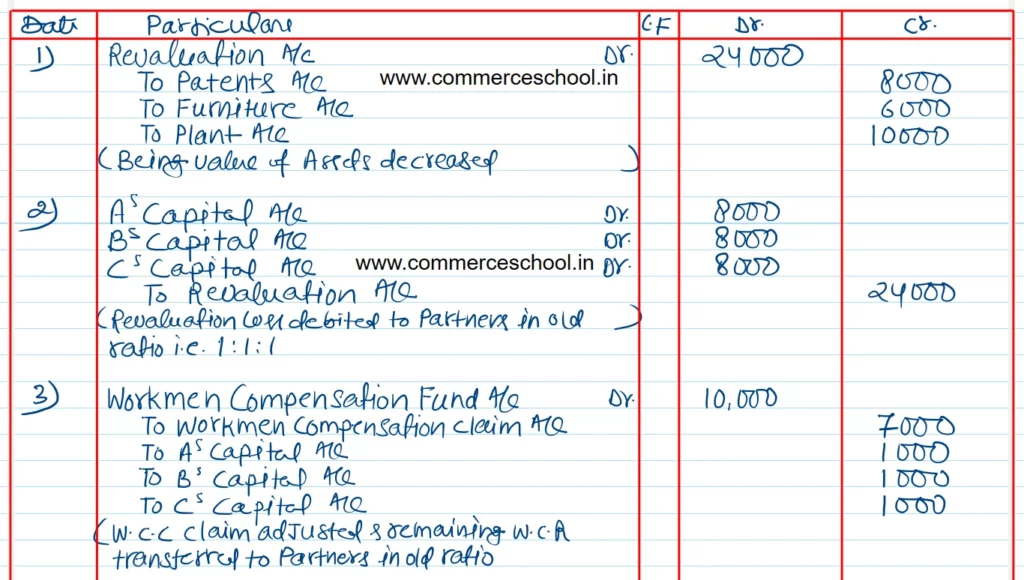 Date Particulars L.F Dr. Cr.
1) Revaluation A/c Dr. 24000
To Patents A/c www.commerceschool.in 8000
To Furniture A/c 6000
To Plant A/c 10000
(Being value of Assets decreased)
2) A's Capital A/c Dr. 8000
B's Capital A/c Dr. 8000
C's Capital A/c www.commerceschool.in Dr. 8000
To Revaluation A/c 24000
(Revaluation loss debited to Partners in old)
ratio i.e. 1:1:1
3) Workmen Compensation Fund A/c Dr. 10,000
To Workmen Compensation claim A/c 7000
To A's Capital A/c 1000
To B's Capital A/c 1000
To C's Capital A/c 1000
(W.C.C claim adjusted & remaining W.C.R
transferred to Partners in old ratio